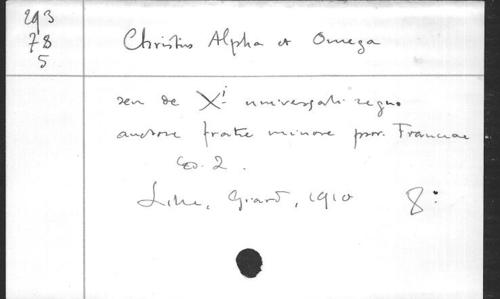 293
78
5
Christus Alpha et Omega
seu de Xi universali regno
auctore fratre minore prov. Franciae
Ed. 2.
Lille, Giard, 1910 8: